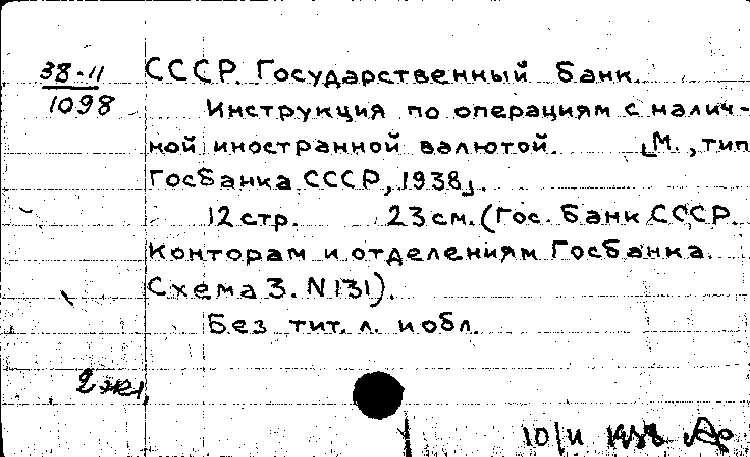 38-11
1098
СССР. Государственный банк.
Инструкция по операциям с налич-
ной иностранной валютой. [М., тип
Госбанка СССР, 1938].
12 стр. 23 см. (Гос. банк СССР.
Конторам и отделениям Госбанка.
Схема 3. N 131).
Без тит. л. и обл.
2 экз.
10/II